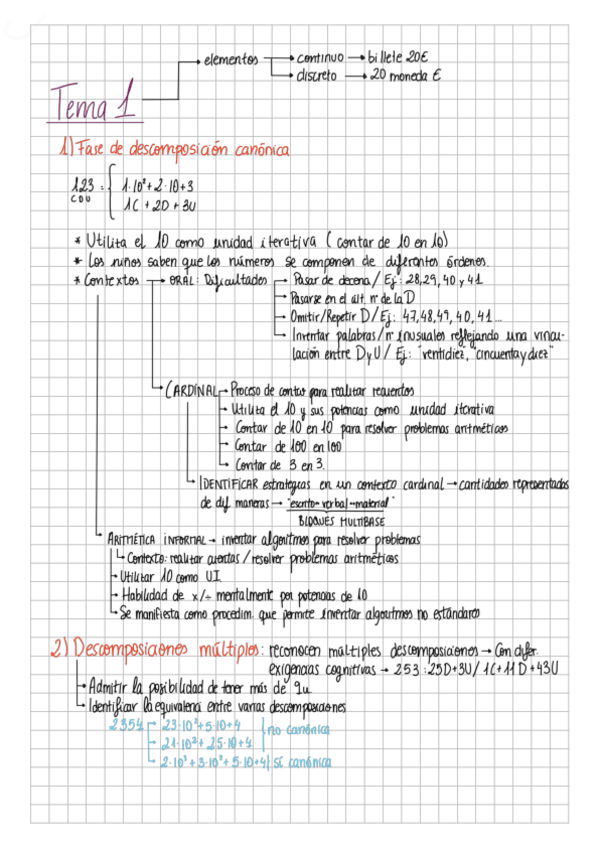 elementos → continuo → billete 20€
→ discreto → 20 moneda €
Tema 1
1) Fase de descomposición canónica
123 = { 1·10²+2·10+3
CDU 1C + 2D + 3U
* Utilita el 10 como unidad iterativa (contar de 10 en 10)
* Los niños saben que los números se componen de diferentes órdenes.
* Contextos → ORAL: Dificultades → Pasar de decena / Ej: 28,29,40 y 41
→ Pasarse en el alt. nº de la D
→ Omitir/Repetir D / Ej: 47,48,49, 40, 41...
→ Inventar palabras/nº inusuales reflejando una vincu-
lación entre D y U / Ej: "ventidiez", "cincuenta y diez"
→ CARDINAL → Proceso de contar para realitar recuentos
→ Utilita el 10 y sus potencias como unidad iterativa
→ Contar de 10 en 10 para resolver problemas aritméticos
→ Contar de 100 en 100
→ Contar de 3 en 3.
→ IDENTIFICAR estrategias en un contexto cardinal → cantidades representadas
de dif maneras → "escrito-verbal-material"
BLOQUES MULTIBASE
→ ARITMÉTICA INFORMAL → inventar algoritmos para resolver problemas
→ Contexto: realitar cuentas / resolver problemas aritméticos
→ Utilitar 10 como UI
→ Habilidad de x/÷ mentalmente por potencias de 10
→ Se manifiesta como procedim. que permite inventar algoritmos no estándares
2) Descomposiciones múltiples: reconocen múltiples descomposiciones → Con difer.
exigencias cognitivas → 253 : 25D+3U / 1C+11D+43U
→ Admitir la posibilidad de tener más de 9u
→ Identificar la equivalenci entre varias descomposiciones
2354 → 23·10²+5·10+4 | no canónica
→ 21·10²+ 25·10+4
→ 2·10³+3·10²+5·10+4 | sí canónica